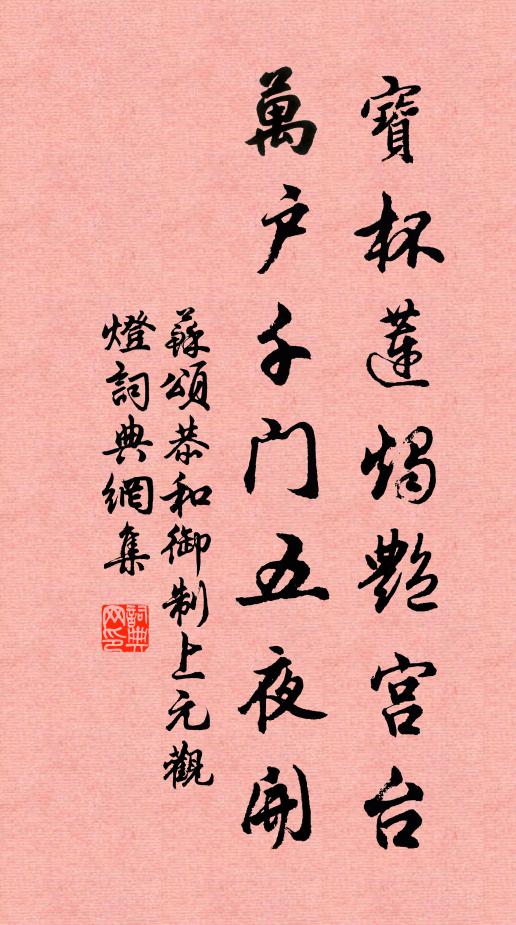 寶杯蓮燭艷宮台
萬户千门五夜開
蘇頌恭和御制上元觀
燈詞典網集
詞典網印